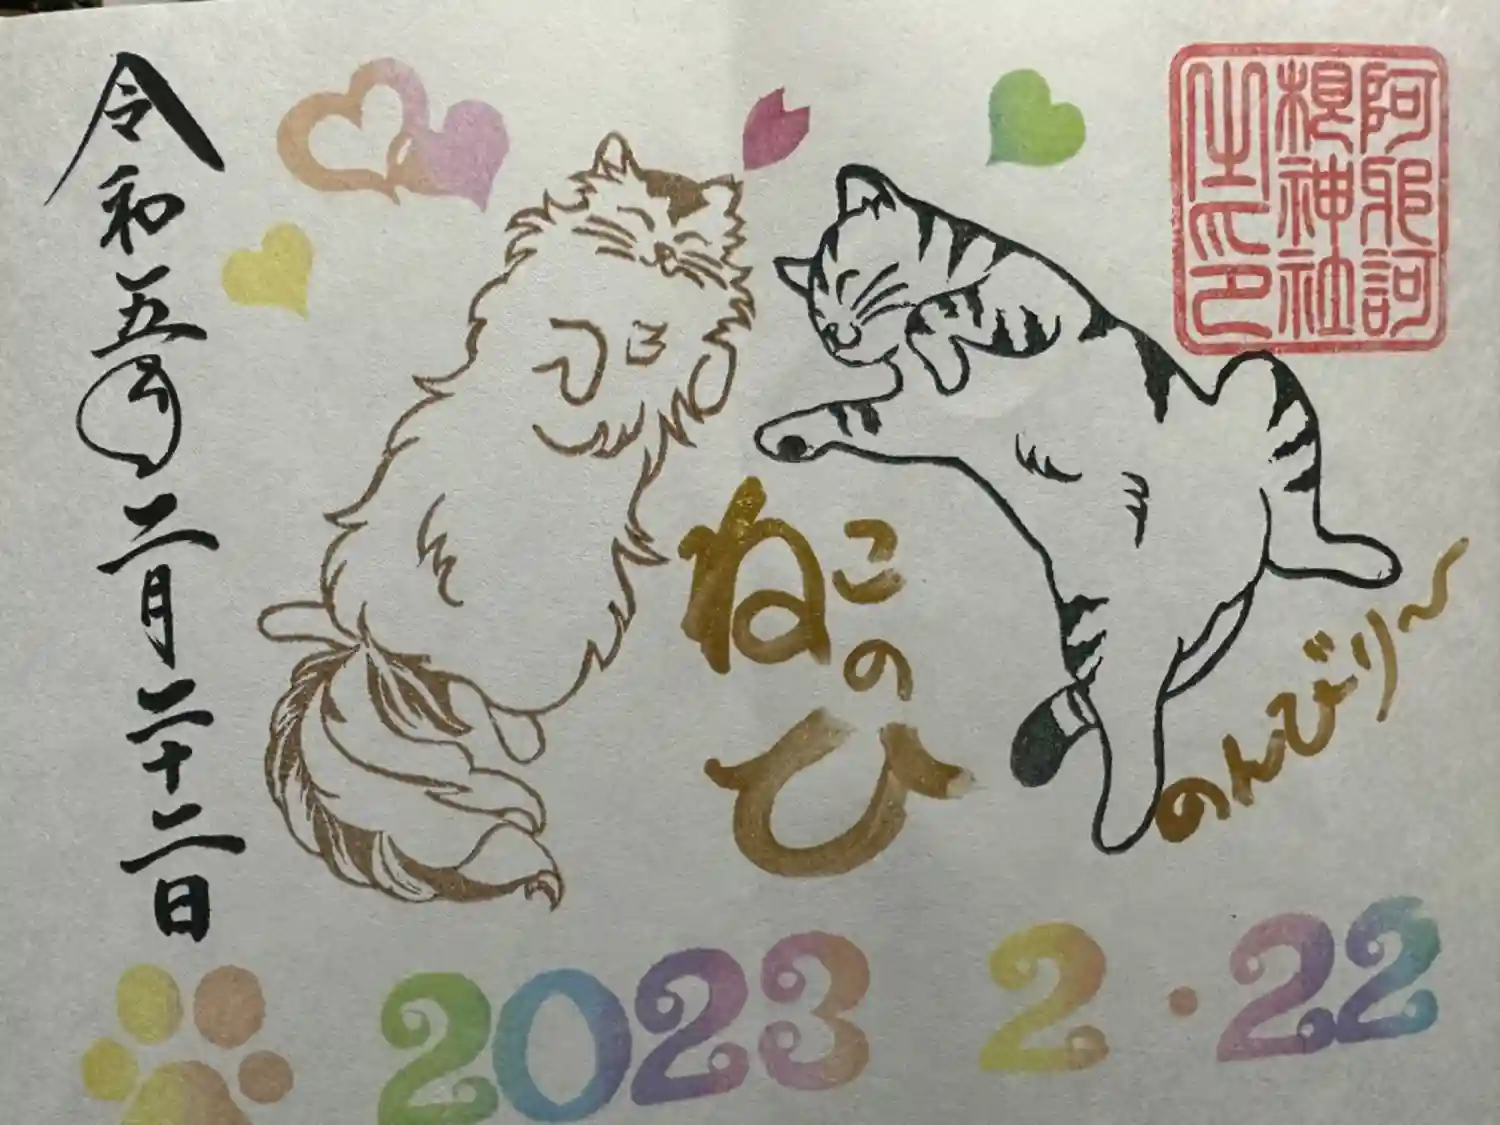 阿邪訶
根神社
之印
令和五年二月二十二日
ねこのひ
のんびり〜
2023 2・22